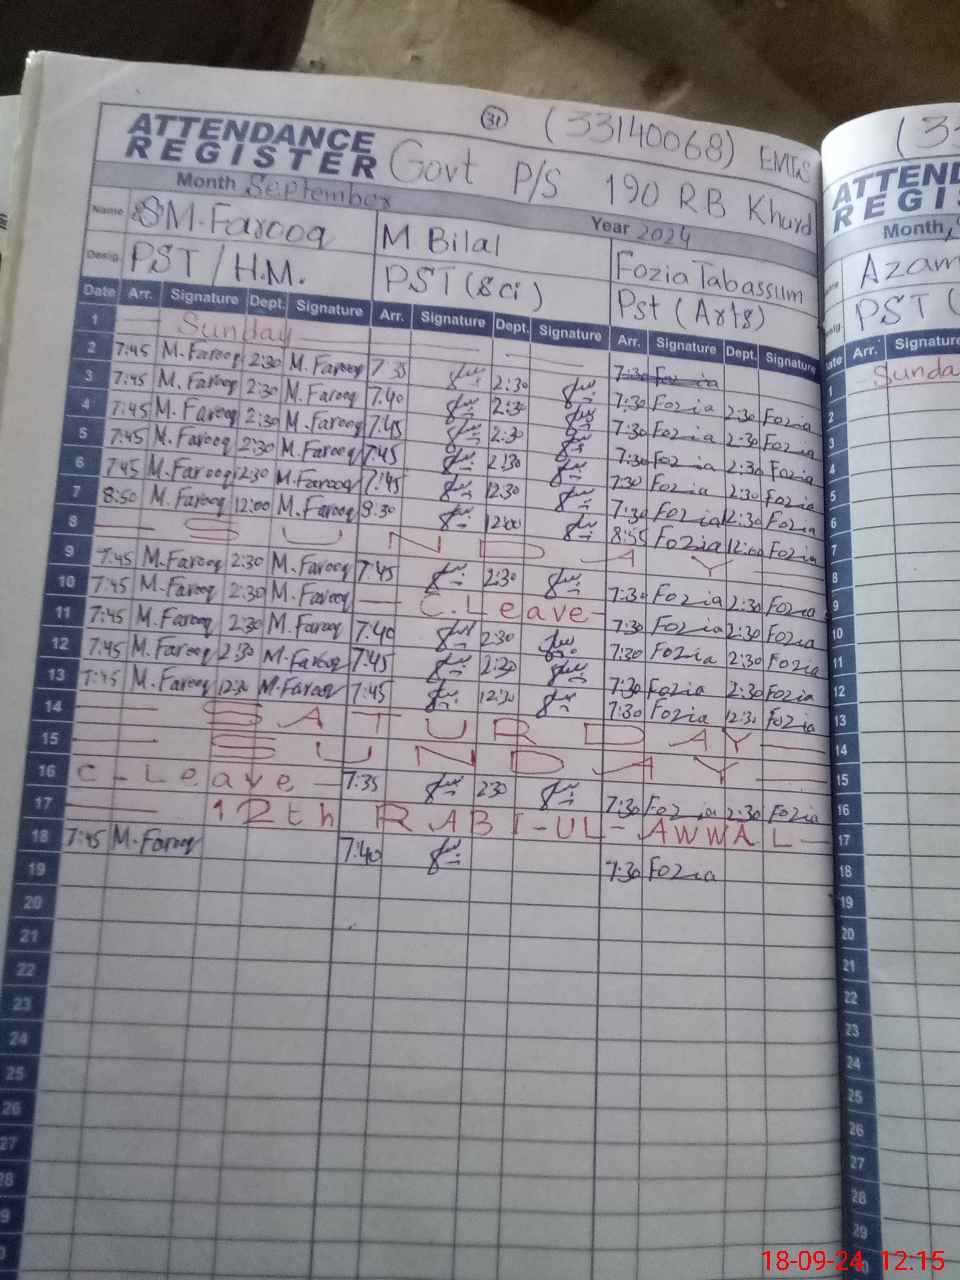 31 (33140068) EMIS
ATTENDANCE REGISTER Govt P/S 190 RB Khurd
Month September Year 2024
Name SM.Farooq M Bilal Fozia Tabassum
Desig. PST / H.M. PST (Sci) Pst (Arts)
Date Arr. Signature Dept. Signature Arr. Signature Dept. Signature Arr. Signature Dept. Signature
1 Sunday
2 7:45 M.Farooq 2:30 M.Farooq 7:35 2:30 7:30 Fozia 2:30 Fozia
3 7:45 M.Farooq 2:30 M.Farooq 7:40 2:30 7:30 Fozia 2:30 Fozia
4 7:45 M.Farooq 2:30 M.Farooq 7:45 2:30 7:30 Fozia 2:30 Fozia
5 7:45 M.Farooq 2:30 M.Farooq 7:45 2:30 7:30 Fozia 2:30 Fozia
6 7:45 M.Farooq 12:30 M.Farooq 7:45 12:30 7:30 Fozia 12:30 Fozia
7 8:50 M.Farooq 12:00 M.Farooq 12:00 8:55 Fozia 12:00 Fozia
8 SUNDAY
9 7:45 M.Farooq 2:30 M.Farooq 7:45 2:30 7:30 Fozia 2:30 Fozia
10 7:45 M.Farooq 2:30 M.Farooq C.Leave 7:30 Fozia 2:30 Fozia
11 7:45 M.Farooq 2:30 M.Farooq 7:40 2:30 7:30 Fozia 2:30 Fozia
12 7:45 M.Farooq 2:30 M.Farooq 7:45 2:30 7:30 Fozia 2:30 Fozia
13 7:45 M.Farooq 12:30 M.Farooq 7:45 12:30 7:30 Fozia 12:30 Fozia
14 SATURDAY
15 SUNDAY
16 C-Leave 7:35 2:30 7:30 Fozia 2:30 Fozia
17 12th RABI-UL-AWWAL
18 7:45 M.Farooq 7:40 7:30 Fozia
19
20
21
22
23
24
25
26
27
28
29
ATTEND
REGIS
Month,
Azam
PST (
Arr. Signature
1 Sunda
2
3
4
5
6
7
8
9
10
11
12
13
14
15
16
17
18
19
20
21
22
23
24
25
26
27
28
29
18-09-24 12:15